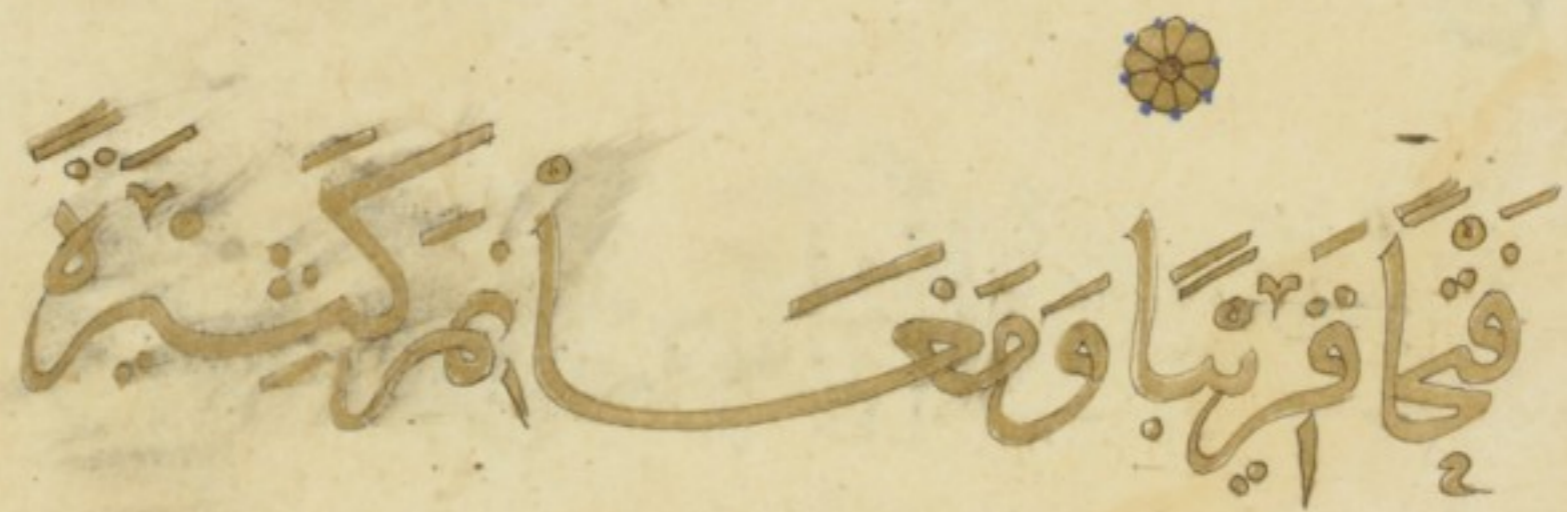 فَتْحًا قَرِيبًا وَمَغَانِمَ كَثِيرَةً